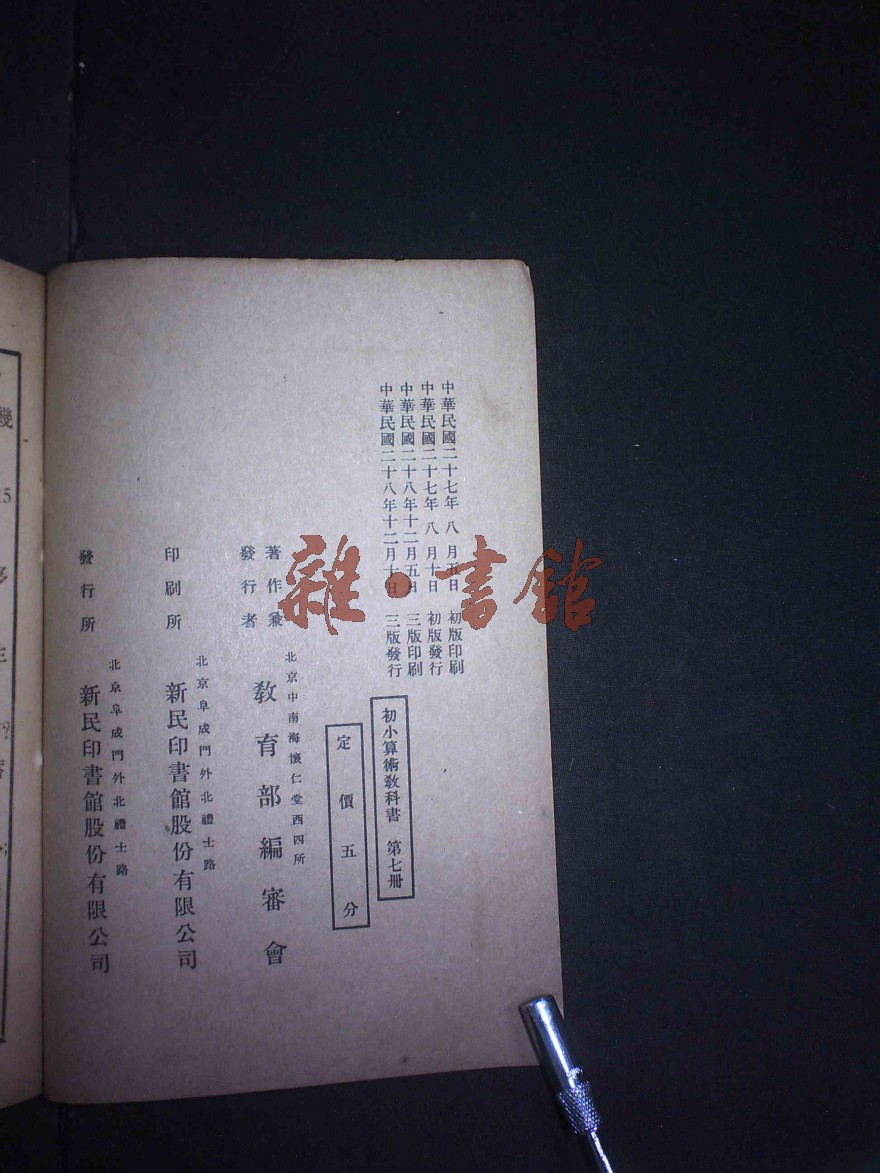 中華民國二十七年 八 月五日 初版印刷
中華民國二十七年 八 月十日 初版發行
中華民國二十八年十二月五日 三版印刷
中華民國二十八年十二月十日 三版發行
初小算術敎科書 第七冊
定價五分
北京中南海懷仁堂西四所
著作兼
發行者
敎育部編審會
北京阜成門外北禮士路
印刷所
新民印書館股份有限公司
北京阜成門外北禮士路
發行所
新民印書館股份有限公司
雜·書館
幾
?